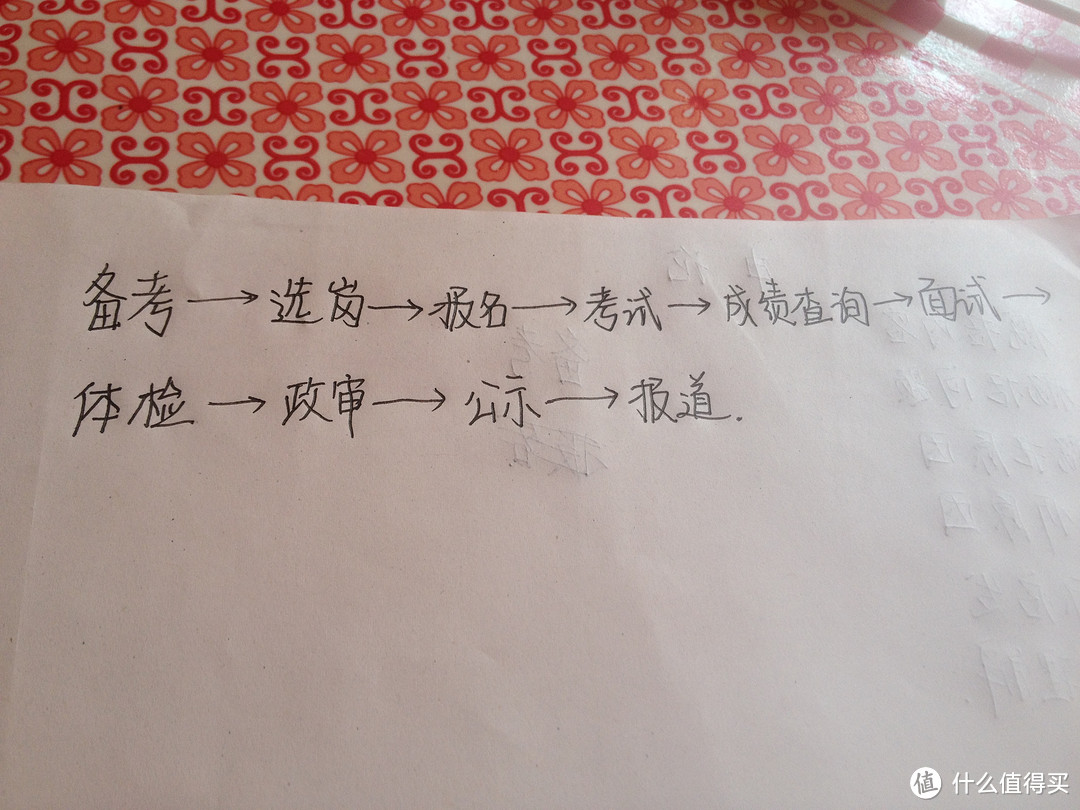 备考→选岗→报名→考试→成绩查询→面试→
体检→政审→公示→报道.
值 什么值得买